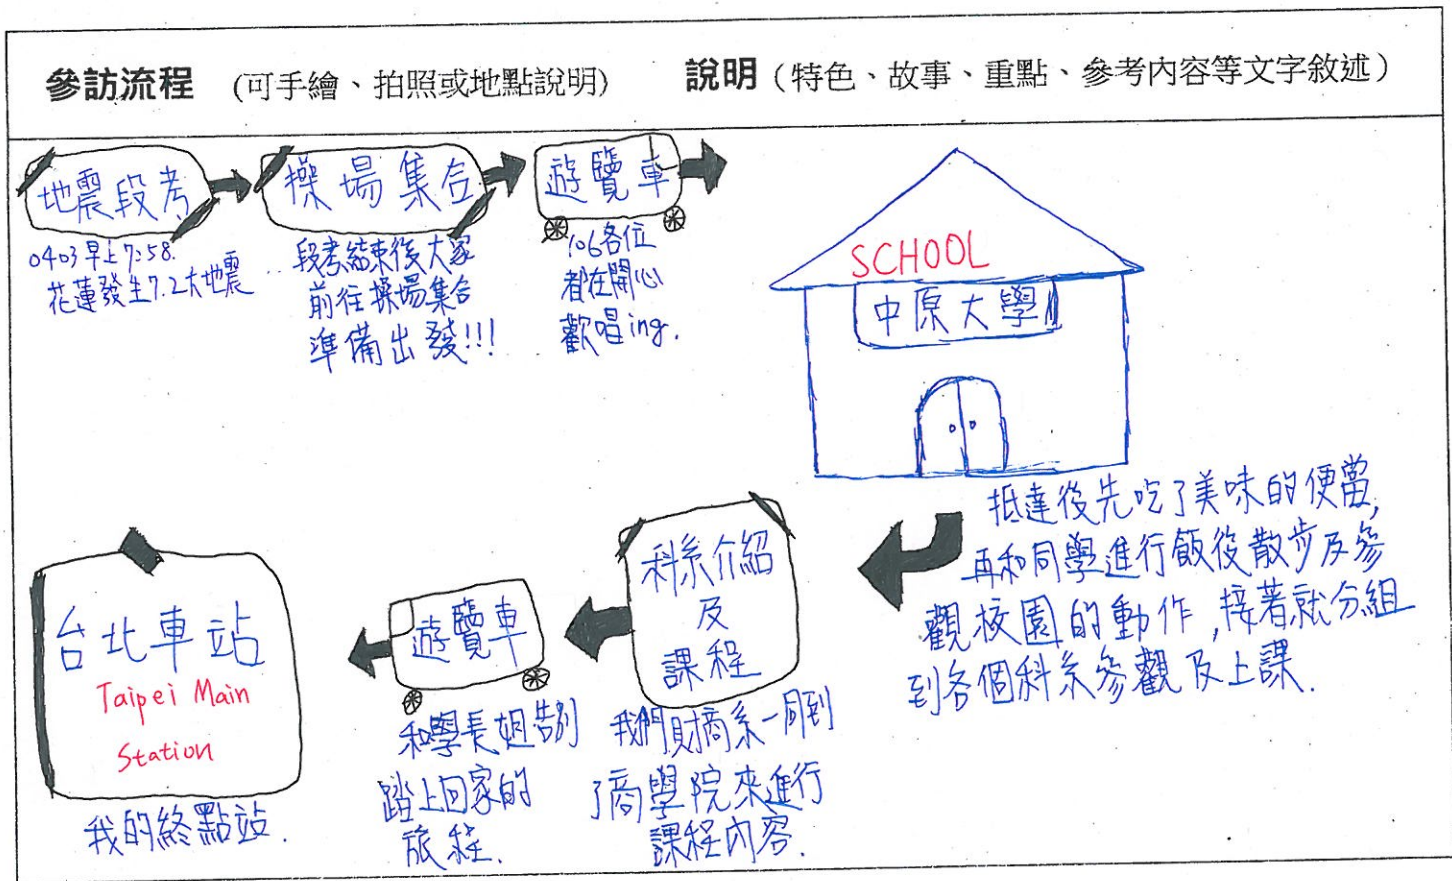 參訪流程 (可手繪、拍照或地點說明) 說明(特色、故事、重點、參考內容等文字敘述)
地震段考
0403早上7:58.
花蓮發生7.2大地震
操場集合
段考結束後大家
前往操場集合
準備出發!!!
遊覽車
106各位
都在開心
歡唱ing.
SCHOOL
中原大學
抵達後先吃了美味的便當,
再和同學進行飯後散步及參
觀校園的動作,接著就分組
到各個科系參觀及上課.
科系介紹
及
課程
我們財商系一同到
了商學院來進行
課程內容.
遊覽車
和學長姐告別
踏上回家的
旅程.
台北車站
Taipei Main
Station
我的終點站.